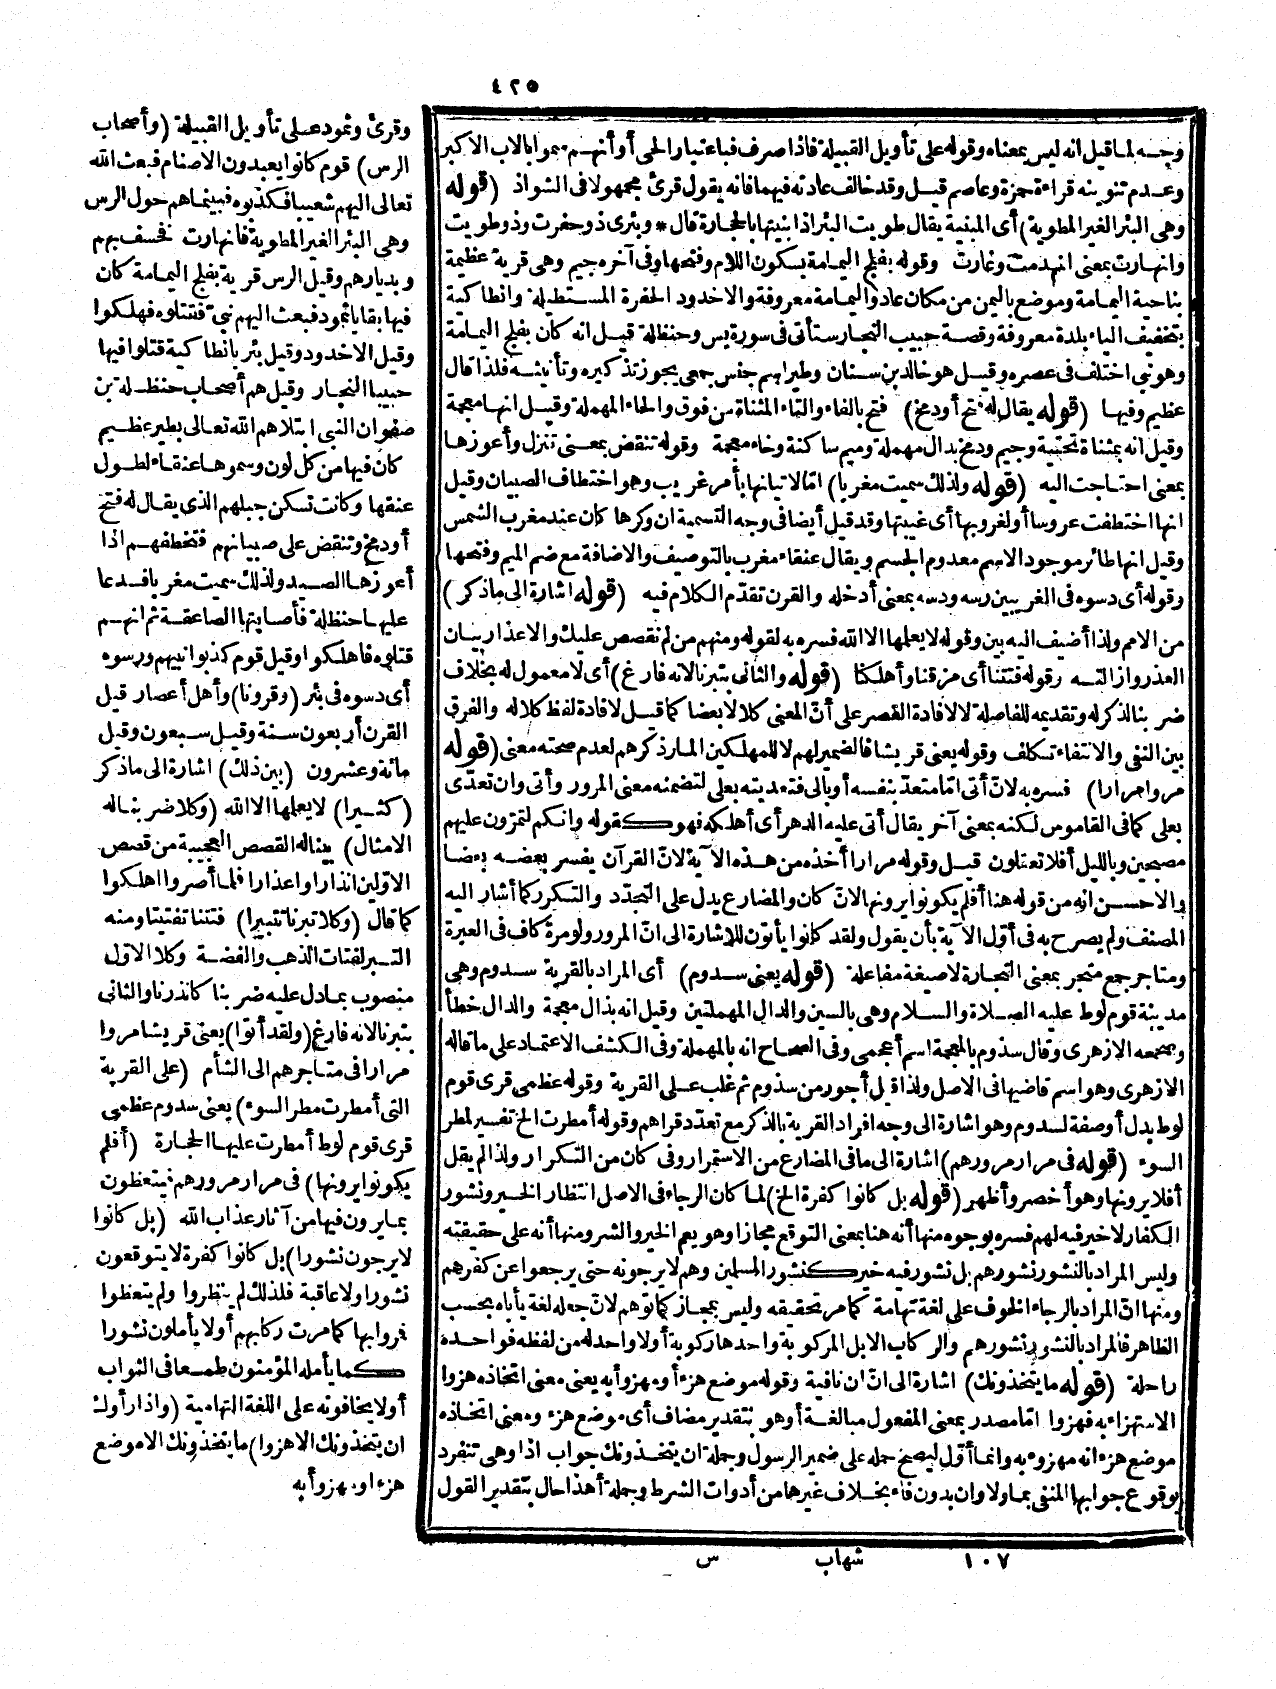 ٤٢٥
وجه لما قيل انه ليس بمعناه وقوله على تأويل القبيلة فاذا صرف فباعتبار الحى أو أنهم سموا بالاب الاكبر
وعدم تنوينه قراءة حمزة وعاصم قيل وقد خالف عادته فيهما فانه يقول قرئ مجهولا فى الشواذ (قوله
وهى البئر الغير المطوية) أى المبنية يقال طويت البئر اذا بنيتها بالحجارة قال * وبئرى ذو حفرت وذو طويت
وانهارت بمعنى انهدمت وغارت وقوله بفلج اليمامة بسكون اللام وفتحها وفى آخره جيم وهى قرية عظيمة
بناحية اليمامة وموضع باليمن من مكان عاد واليمامة معروفة والاخدود الحفرة المستطيلة وانطاكية
بتخفيف الياء بلدة معروفة وقصة حبيب النجار ستأتى فى سورة يس وحنظلة قيل انه كان بفلج اليمامة
وهو نبى اختلف فى عصره وقيل هو خالد بن سنان وطير اسم جنس جمعى يجوز تذكيره وتأنيثه فلذا قال
عظيم وفيها (قوله يقال له فتح أو دمخ) فتح بالفاء والتاء المثناة من فوق والحاء المهملة وقيل انها معجمة
وقيل انه بمثناة تحتية وجيم ودمخ بدال مهملة وميم ساكنة وخاء معجمة وقوله تنقض بمعنى تنزل وأعوزها
بمعنى احتاجت اليه (قوله ولذلك سميت مغربا) امّا لاتيانها بأمر غريب وهو اختطاف الصبيان وقيل
انها اختطفت عروسا أو لغروبها أى غيبتها وقد قيل أيضا فى وجه التسمية ان وكرها كان عند مغرب الشمس
وقيل انها طائر موجود الاسم معدوم الجسم ويقال عنقاء مغرب بالتوصيف والاضافة مع ضم الميم وفتحها
وقوله أى دسوه فى الغريبين رسه ودسه بمعنى أدخله والقرن تقدّم الكلام فيه (قوله اشارة الى ما ذكر)
من الامم ولذا أضيف اليه بين وقوله لا يعلمها الا الله فسره به لقوله ومنهم من لم نقصص عليك والاعذار بيان
العذر وازالته وقوله فتتنا أى مزقنا وأهلكنا (قوله والثانى بتبرنا لانه فارغ) أى لا معمول له بخلاف
ضربنا لذكر له وتقديمه للفاصلة لا لافادة القصر على أنّ المعنى كلا لا بعضا كما قيل لافادة لفظ كلا له والفرق
بين النفى والانتفاء تكلف وقوله يعنى قريشا فالضمير لهم لا للمهلكين المار ذكرهم لعدم صحته معنى (قوله
مروا مرارا) فسره به لانّ أتى امّا متعدّ بنفسه أو بالى فتعديته بعلى لتضمنه معنى المرور وأتى وان تعدّى
بعلى كما فى القاموس لكنه بمعنى آخر يقال أتى عليه الدهر أى أهلكه فهو كقوله وانكم لتمرّون عليهم
مصبحين وبالليل أفلا تعقلون قيل وقوله مرارا أخذه من هذه الآية لانّ القرآن يفسر بعضه بعضا
والاحسن انه من قوله هنا أفلم يكونوا يرونها لانّ كان والمضارع يدل على التجدّد والتكرر كما أشار اليه
المصنف ولم يصرح به فى أوّل الآية بأن يقول ولقد كانوا يأتون للاشارة الى انّ المرور ولو مرة كاف فى العبرة
ومتاجر جمع متجر بمعنى التجارة لا صيغة مفاعلة (قوله يعنى سدوم) أى المراد بالقرية سدوم وهى
مدينة قوم لوط عليه الصلاة والسلام وهى بالسين والدال المهملتين وقيل انه بذال معجمة والدال خطأ
وصححه الازهرى وقال سذوم بالمعجمة اسم أعجمى وفى الصحاح انه بالمهملة وفى الكشف الاعتماد على ما قاله
الازهرى وهو اسم قاضيها فى الاصل ولذا قيل أجور من سذوم ثم غلب على القرية وقوله عظمى قرى قوم
لوط بدل أو صفة لسدوم وهو اشارة الى وجه افراد القرية بالذكر مع تعدّد قراهم وقوله أمطرت الخ تفسير لمطر
السوء (قوله فى مرار مرورهم) اشارة الى ما فى المضارع من الاستمرار وفى كان من التكرار ولذا لم يقل
أفلا يرونها وهو أخصر وأظهر (قوله بل كانوا كفرة الخ) لما كان الرجاء فى الاصل انتظار الخير ونشور
الكفار لا خير فيه لهم فسره بوجوه منها أنه هنا بمعنى التوقع مجازا وهو يعم الخير والشر ومنها أنه على حقيقته
وليس المراد بالنشور نشورهم بل نشور فيه خير كنشور المسلمين وهم لا يرجونه حتى يرجعوا عن كفرهم
ومنها انّ المراد بالرجاء الخوف على لغة تهامة كما مر تحقيقه وليس بمجاز كما توهم لانّ جعله لغة يأباه بحسب
الظاهر فالمراد بالنشور نشورهم والركاب الابل المركوبة واحدها ركوبة أو لا واحد له من لفظه فواحده
راحلة (قوله ما يتخذونك) اشارة الى انّ ان نافية وقوله موضع هزء أو مهزوأ به يعنى معنى اتخاذه هزوا
الاستهزاء به فهزوا امّا مصدر بمعنى المفعول مبالغة أو هو بتقدير مضاف أى موضع هزء ومعنى اتخاذه
موضع هزء انه مهزوء به وانما أوّل ليصح حمله على ضمير الرسول وجملة ان يتخذونك جواب اذا وهى تنفرد
بوقوع جوابها المنفى بما ولا وان بدون فاء بخلاف غيرها من أدوات الشرط وجملة أهذا حال بتقدير القول
وقرئ وثمود على تأويل القبيلة (وأصحاب
الرس) قوم كانوا يعبدون الاصنام فبعث الله
تعالى اليهم شعيبا فكذبوه فبينما هم حول الرس
وهى البئر الغير المطوية فانهارت فخسف بهم
وبديارهم وقيل الرس قرية بفلج اليمامة كان
فيها بقايا ثمود فبعث اليهم نبىّ فقتلوه فهلكوا
وقيل الاخدود وقيل بئر بانطاكية قتلوا فيها
حبيبا النجار وقيل هم أصحاب حنظلة بن
صفوان النبى ابتلاهم الله تعالى بطير عظيم
كان فيها من كل لون وسموها عنقاء لطول
عنقها وكانت تسكن جبلهم الذى يقال له فتح
أو دمخ وتنقض على صبيانهم فتخطفهم اذا
أعوزها الصيد ولذلك سميت مغربا فدعا
عليها حنظلة فأصابتها الصاعقة ثم انهم
قتلوه فاهلكوا وقيل قوم كذبوا نبيهم ورسوه
أى دسوه فى بئر (وقرونا) وأهل أعصار قيل
القرن أربعون سنة وقيل سبعون وقيل
مائة وعشرون (بين ذلك) اشارة الى ما ذكر
(كثيرا) لا يعلمها الا الله (وكلا ضربنا له
الامثال) بينا له القصص العجيبة من قصص
الاوّلين انذارا واعذارا فلما أصروا اهلكوا
كما قال (وكلا تبرنا تتبيرا) فتتنا تفتيتا ومنه
التبر لفتات الذهب والفضة وكلا الاوّل
منصوب بما دل عليه ضربنا كانذرنا والثانى
بتبرنا لانه فارغ (ولقد أتوا) يعنى قريشا مروا
مرارا فى متاجرهم الى الشأم (على القرية
التى أمطرت مطر السوء) يعنى سدوم عظمى
قرى قوم لوط أمطرت عليها الحجارة (أفلم
يكونوا يرونها) فى مرار مرورهم فيتعظون
بما يرون فيها من آثار عذاب الله (بل كانوا
لا يرجون نشورا) بل كانوا كفرة لا يتوقعون
نشورا ولا عاقبة فلذلك لم ينظروا ولم يتعظوا
فمروا بها كما مرت ركابهم أو لا يأملون نشورا
كما يأمله المؤمنون طمعا فى الثواب
أو لا يخافونه على اللغة التهامية (واذا رأوك
ان يتخذونك الا هزوا) ما يتخذونك الا موضع
هزء او مهزوأ به
١٠٧ شهاب س